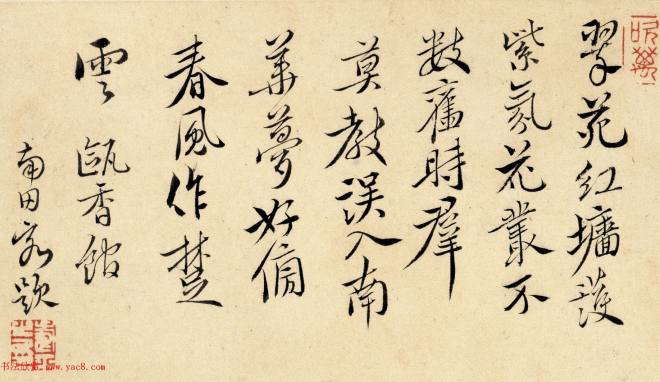 翠苑紅墻護
紫氛花叢不
數舊時群
莫教誤入南
華夢好傍
春風作楚
雲 甌香館
南田客題
www.yac8.com